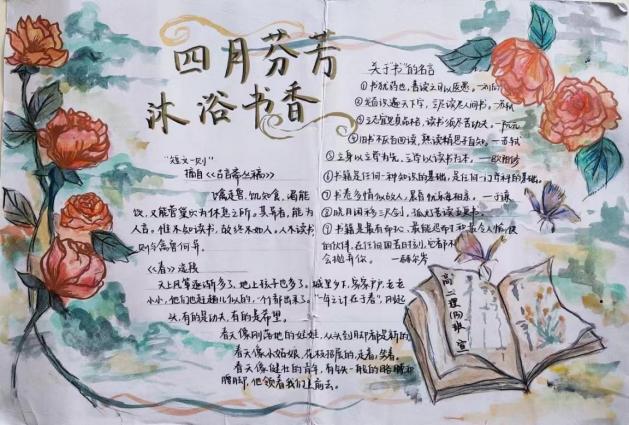 四月芬芳
沐浴书香
“短文一则”
摘自《古言斋丛稿》
饥知食，渴能
饮，又能营巢穴为休息之所。其异者，能为
人言。惟不知读书，故终不如人。人不读书
则与禽兽何异。
《春》
天上风筝渐渐多了，地上孩子也多了。城里乡下，家家户户，老老
小小，他们也赶趟儿似的，一个个都出来了。“一年之计在于春”，刚起
头，有的是功夫，有的是希望。
春天像刚落地的娃娃，从头到脚都是新的
春天像小姑娘，花枝招展的，走着，笑着。
春天像健壮的青年，有铁一般的胳膊和
腰脚，他领着我们上前去。
关于“书”的名言
①书犹药也，善读之可以医愚。—刘向
②发奋识遍天下字，立志读尽人间书。—苏轼
③
读书须尽苦功夫。—阮元
④旧书不厌百回读，熟读精思子自知。—苏轼
⑤立身以立学为先，立学以读书为本。—欧阳修
⑥书籍是任何一种知识的基础，是任何一门学科的基础。
⑦书卷多情似故人，晨昏忧乐每相亲。—于谦
⑧皓月闲移三尺剑，孤灯勇读五更书。
⑨书籍是最有耐心、最能忍耐和最令人愉快
的伙伴，在任何困苦时刻，它都不
会抛弃你。—赫尔岑
高二理
班